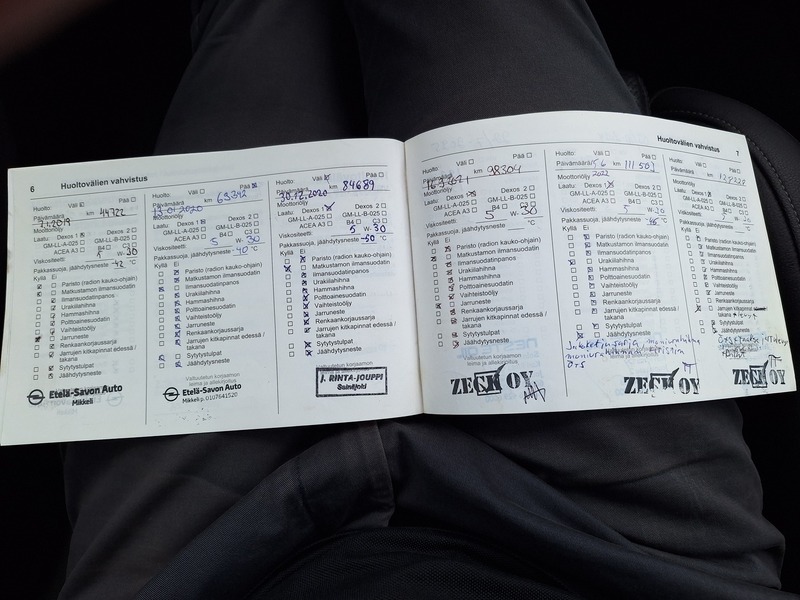 6 Huoltovälien vahvistus
Huolto: Väli Pää
Päivämäärä km 44722
7.1.2019
Moottoriöljy
Laatu: Dexos 1 Dexos 2
GM-LL-A-025 GM-LL-B-025
ACEA A3 B4 C3
Viskositeetti 5 W- 30
Pakkassuoja, jäähdytysneste -42 °C
Kyllä Ei
Paristo (radion kauko-ohjain)
Matkustamon ilmansuodatin
Ilmansuodatinpanos
Urakiilahihna
Hammashihna
Polttoainesuodatin
Vaihteistoöljy
Jarruneste
Renkaankorjaussarja
Jarrujen kitkapinnat edessä /
takana
Sytytystulpat
Jäähdytysneste
Etelä-Savon Auto
Mikkeli
Huolto: Väli Pää
Päivämäärä km 69342
Moottoriöljy
Laatu: Dexos 1 Dexos 2
GM-LL-A-025 GM-LL-B-025
ACEA A3 B4 C3
Viskositeetti 5 W- 30
Pakkassuoja, jäähdytysneste -40 °C
Kyllä Ei
Paristo (radion kauko-ohjain)
Matkustamon ilmansuodatin
Ilmansuodatinpanos
Urakiilahihna
Hammashihna
Polttoainesuodatin
Vaihteistoöljy
Jarruneste
Renkaankorjaussarja
Jarrujen kitkapinnat edessä /
takana
Sytytystulpat
Jäähdytysneste
Etelä-Savon Auto
Mikkeli p. 0107641520
Huolto: Väli Pää
Päivämäärä km 84689
30.12.2020
Moottoriöljy
Laatu: Dexos 1 Dexos 2
GM-LL-A-025 GM-LL-B-025
ACEA A3 B4 C3
Viskositeetti 5 W- 30
Pakkassuoja, jäähdytysneste -50 °C
Kyllä Ei
Paristo (radion kauko-ohjain)
Matkustamon ilmansuodatin
Ilmansuodatinpanos
Urakiilahihna
Hammashihna
Polttoainesuodatin
Vaihteistoöljy
Jarruneste
Renkaankorjaussarja
Jarrujen kitkapinnat edessä /
takana
Sytytystulpat
Jäähdytysneste
Valtuutetun korjaamon
leima ja allekirjoitus
J. RINTA-JOUPPI
Seinäjoki
Huoltovälien vahvistus 7
Huolto: Väli Pää
Päivämäärä km 98304
Moottoriöljy
Laatu: Dexos 1 Dexos 2
GM-LL-A-025 GM-LL-B-025
ACEA A3 B4 C3
Viskositeetti 5 W- 30
Pakkassuoja, jäähdytysneste °C
Kyllä Ei
Paristo (radion kauko-ohjain)
Matkustamon ilmansuodatin
Ilmansuodatinpanos
Urakiilahihna
Hammashihna
Polttoainesuodatin
Vaihteistoöljy
Jarruneste
Renkaankorjaussarja
Jarrujen kitkapinnat edessä /
takana
Sytytystulpat
Jäähdytysneste
Valtuutetun korjaamon
leima ja allekirjoitus
ZECK OY
Huolto: Väli Pää
Päivämäärä km 111501
2022
Moottoriöljy
Laatu: Dexos 1 Dexos 2
GM-LL-A-025 GM-LL-B-025
ACEA A3 B4 C3
Viskositeetti 5 W- 30
Pakkassuoja, jäähdytysneste °C
Kyllä Ei
Paristo (radion kauko-ohjain)
Matkustamon ilmansuodatin
Ilmansuodatinpanos
Urakiilahihna
Hammashihna
Polttoainesuodatin
Vaihteistoöljy
Jarruneste
Renkaankorjaussarja
Jarrujen kitkapinnat edessä /
takana
Sytytystulpat
Jäähdytysneste
ZECK OY
Huolto: Väli Pää
Päivämäärä km 128328
Moottoriöljy
Laatu: Dexos 1 Dexos 2
GM-LL-A-025 GM-LL-B-025
ACEA A3 B4 C3
Viskositeetti 5 W-
Pakkassuoja, jäähdytysneste °C
Kyllä Ei
Paristo (radion kauko-ohjain)
Matkustamon ilmansuodatin
Ilmansuodatinpanos
Urakiilahihna
Hammashihna
Polttoainesuodatin
Vaihteistoöljy
Jarruneste
Renkaankorjaussarja
Jarrujen kitkapinnat edessä /
takana
Sytytystulpat
Jäähdytysneste
ZECK OY